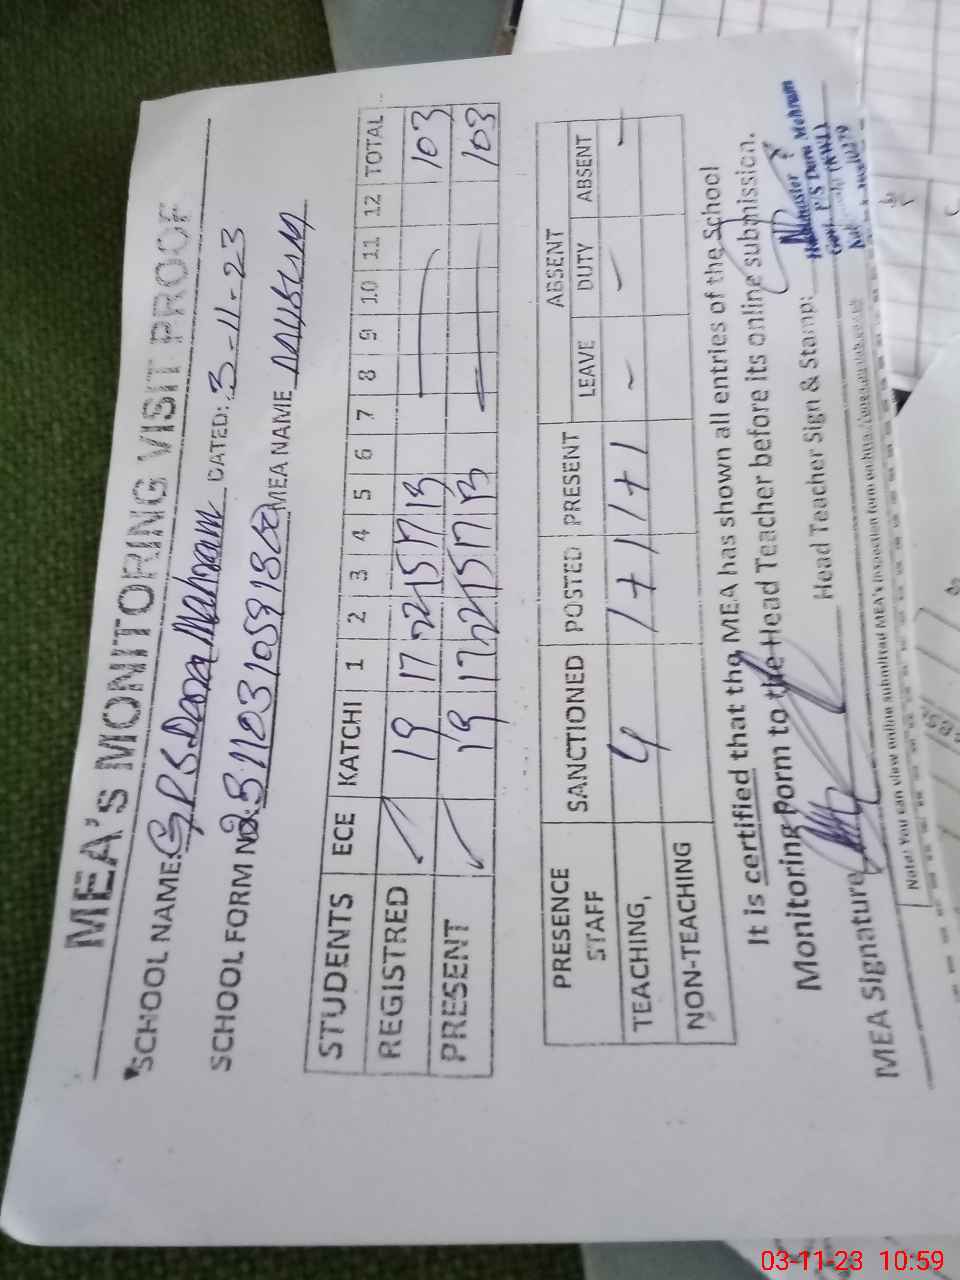 MEA's MONITORING VISIT PROOF
SCHOOL NAME: G P S Dera Mehram DATED: 3-11-23
SCHOOL FORM NO: MEA NAME
STUDENTS ECE KATCHI 1 2 3 4 5 6 7 8 9 10 11 12 TOTAL
REGISTRED 19 17 22 15 17 13 103
PRESENT 19 17 22 15 17 13 103
PRESENCE STAFF SANCTIONED POSTED PRESENT ABSENT
LEAVE DUTY ABSENT
TEACHING, 4 1+1 1+1 - - -
NON-TEACHING
It is certified that the MEA has shown all entries of the School
Monitoring Form to the Head Teacher before its online submission.
MEA Signature Head Teacher Sign & Stamp:
Headmaster
Govt. P/S Dera Mehram
(KWL)
Note: You can view online submitted MEA's inspection form on
03-11-23 10:59